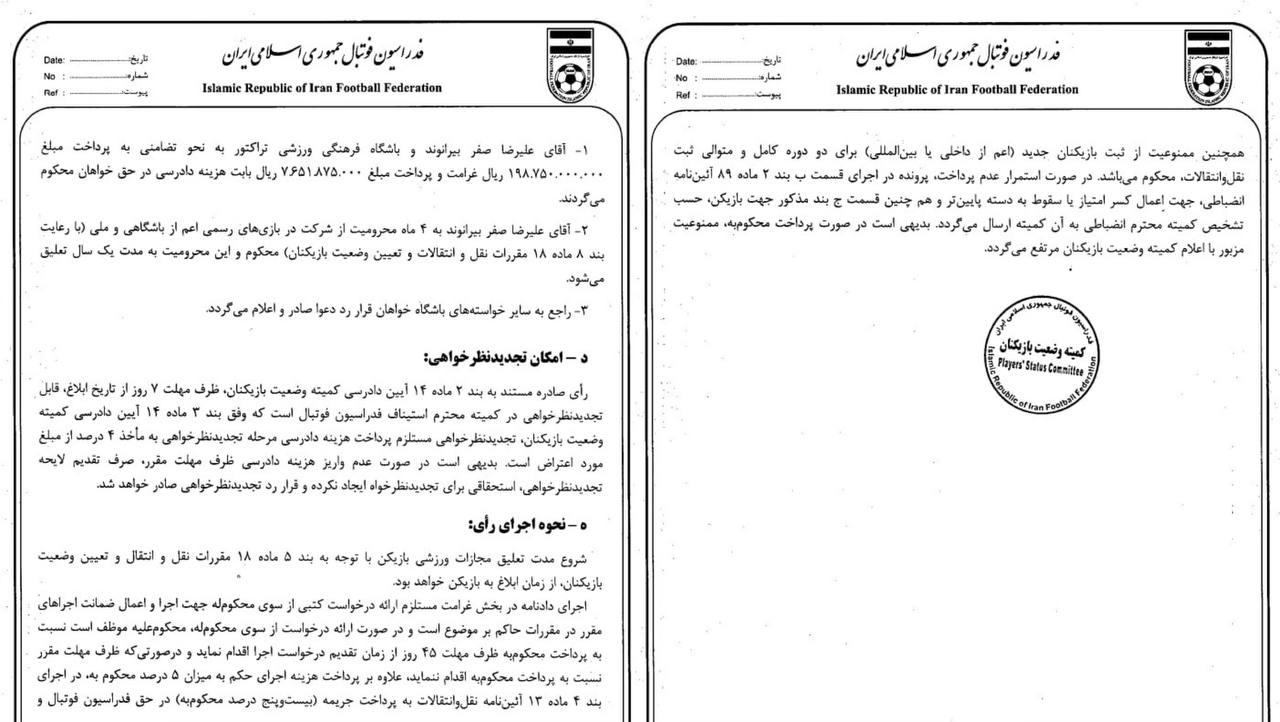 تاریخ: Date:
شماره: No :
پیوست: Ref :
فدراسیون فوتبال جمهوری اسلامی ایران
Islamic Republic of Iran Football Federation
۱- آقای علیرضا صفر بیرانوند و باشگاه فرهنگی ورزشی تراکتور به نحو تضامنی به پرداخت مبلغ
۱۹۸.۷۵۰.۰۰۰.۰۰۰ ریال غرامت و پرداخت مبلغ ۷.۶۵۱.۸۷۵.۰۰۰ ریال بابت هزینه دادرسی در حق خواهان محکوم
می‌گردند.
۲- آقای علیرضا صفر بیرانوند به ۴ ماه محرومیت از شرکت در بازی‌های رسمی اعم از باشگاهی و ملی (با رعایت
بند ۸ ماده ۱۸ مقررات نقل و انتقالات و تعیین وضعیت بازیکنان) محکوم و این محرومیت به مدت یک سال تعلیق
می‌شود.
۳- راجع به سایر خواسته‌های باشگاه خواهان قرار رد دعوا صادر و اعلام می‌گردد.
د – امکان تجدیدنظرخواهی:
رأی صادره مستند به بند ۲ ماده ۱۴ آیین دادرسی کمیته وضعیت بازیکنان، ظرف مهلت ۷ روز از تاریخ ابلاغ، قابل
تجدیدنظرخواهی در کمیته محترم استیناف فدراسیون فوتبال است که وفق بند ۳ ماده ۱۴ آیین دادرسی کمیته
وضعیت بازیکنان، تجدیدنظرخواهی مستلزم پرداخت هزینه دادرسی مرحله تجدیدنظرخواهی به مأخذ ۴ درصد از مبلغ
مورد اعتراض است. بدیهی است در صورت عدم واریز هزینه دادرسی ظرف مهلت مقرر، صرف تقدیم لایحه
تجدیدنظرخواهی، استحقاقی برای تجدیدنظرخواه ایجاد نکرده و قرار رد تجدیدنظرخواهی صادر خواهد شد.
ه – نحوه اجرای رأی:
شروع مدت تعلیق مجازات ورزشی بازیکن با توجه به بند ۵ ماده ۱۸ مقررات نقل و انتقال و تعیین وضعیت
بازیکنان، از زمان ابلاغ به بازیکن خواهد بود.
اجرای دادنامه در بخش غرامت مستلزم ارائه درخواست کتبی از سوی محکوم‌له جهت اجرا و اعمال ضمانت اجراهای
مقرر در مقررات حاکم بر موضوع است و در صورت ارائه درخواست از سوی محکوم‌له، محکوم‌علیه موظف است نسبت
به پرداخت محکوم‌به ظرف مهلت ۴۵ روز از زمان تقدیم درخواست اجرا اقدام نماید و درصورتی‌که ظرف مهلت مقرر
نسبت به پرداخت محکوم‌به اقدام ننماید، علاوه بر پرداخت هزینه اجرای حکم به میزان ۵ درصد محکوم به، در اجرای
بند ۴ ماده ۱۳ آئین‌نامه نقل‌وانتقالات به پرداخت جریمه (بیست‌وپنج درصد محکوم‌به) در حق فدراسیون فوتبال و
تاریخ: Date:
شماره: No :
پیوست: Ref :
فدراسیون فوتبال جمهوری اسلامی ایران
Islamic Republic of Iran Football Federation
همچنین ممنوعیت از ثبت بازیکنان جدید (اعم از داخلی یا بین‌المللی) برای دو دوره کامل و متوالی ثبت
نقل‌وانتقالات، محکوم می‌باشد. در صورت استمرار عدم پرداخت، پرونده در اجرای قسمت ب بند ۲ ماده ۸۹ آئین‌نامه
انضباطی، جهت إعمال کسر امتیاز یا سقوط به دسته پایین‌تر و هم چنین قسمت ج بند مذکور جهت بازیکن، حسب
تشخیص کمیته محترم انضباطی به آن کمیته ارسال می‌گردد. بدیهی است در صورت پرداخت محکوم‌به، ممنوعیت
مزبور با اعلام کمیته وضعیت بازیکنان مرتفع می‌گردد.
فدراسیون فوتبال جمهوری اسلامی ایران
کمیته وضعیت بازیکنان
Players' Status Committee
Islamic Republic of Iran Football Federation